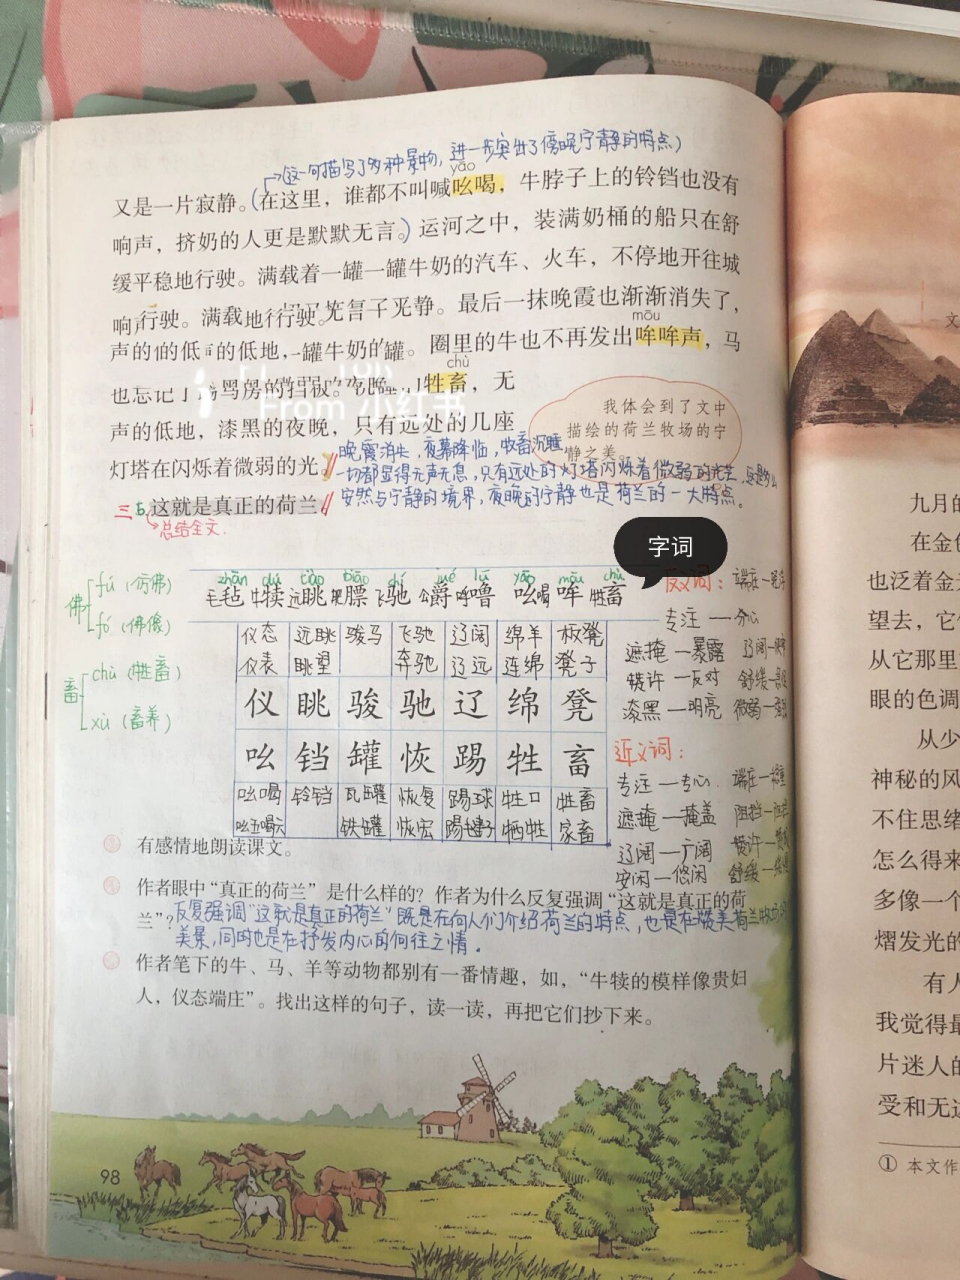 (这一句描写了多种景物，进一步突出了傍晚宁静的特点)
yāo
又是一片寂静。(在这里，谁都不叫喊吆喝，牛脖子上的铃铛也没有
响声，挤奶的人更是默默无言。)运河之中，装满奶桶的船只在舒
缓平稳地行驶。满载着一罐一罐牛奶的汽车、火车，不停地开往城
最后一抹晚霞也渐渐消失了，
mōu
圈里的牛也不再发出哞哞声，马
chù
牲畜，无
From 小红书
声的低地，漆黑的夜晚，只有远处的几座
灯塔在闪烁着微弱的光。
我体会到了文中
描绘的荷兰牧场的宁
静之美。
晚霞消失，夜幕降临，牧畜沉睡
一切都显得无声无息，只有远处的灯塔闪烁着微弱的光芒，
安然与宁静的境界，夜晚的宁静也是荷兰的一大特点。
三 这就是真正的荷兰
总结全文.
字词
佛 fú (仿佛)
fó (佛像)
畜 chù (牲畜)
xù (畜养)
zhān dú tiào biāo chí jué lǔ yāo mōu chù
毛毡 牛犊 远眺 肥膘 飞驰 公爵 呼噜 吆喝 哞 牲畜
仪态 远眺 骏马 飞驰 辽阔 绵羊 板凳
仪表 眺望 奔驰 辽远 连绵 凳子
仪 眺 骏 驰 辽 绵 凳
吆 铛 罐 恢 踢 牲 畜
吆喝 铃铛 瓦罐 恢复 踢球 牲口 牲畜
吆五喝六 铁罐 恢宏 踢毽子 牺牲 家畜
反义词：
专注 — 分心
遮掩 — 暴露
赞许 — 反对
漆黑 — 明亮
近义词：
专注 — 专心
遮掩 — 掩盖
辽阔 — 广阔
安闲 — 悠闲
有感情地朗读课文。
作者眼中“真正的荷兰”是什么样的？作者为什么反复强调“这就是真正的荷
兰”？
反复强调“这就是真正的荷兰”既是在向人们介绍荷兰的特点，也是在赞美荷兰牧场的
美景，同时也是在抒发内心的向往之情.
作者笔下的牛、马、羊等动物都别有一番情趣，如，“牛犊的模样像贵妇
人，仪态端庄”。找出这样的句子，读一读，再把它们抄下来。
98
文
九月的
在金色
也泛着金
望去，它
从它那里
眼的色调
从少
神秘的风
不住思绪
怎么得来
多像一个
熠发光的
有人
我觉得最
片迷人的
受和无
① 本文作